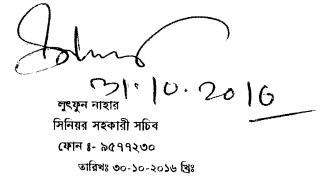 ৩১.১০.2016
লুৎফুন নাহার
সিনিয়র সহকারী সচিব
ফোন ঃ- ৯৫৭৭২৩০
তারিখঃ ৩০-১০-২০১৬ খ্রিঃ